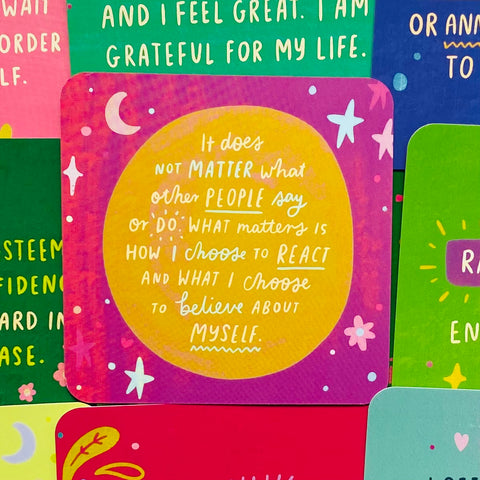 WAIT
ORDER
LF.
AND I FEEL GREAT. I AM
GRATEFUL FOR MY LIFE.
OR ANN
TO
It does
NOT MATTER what
other PEOPLE say
or DO. WHAT matters IS
HOW I choose TO REACT
AND WHAT I choose
TO believe ABOUT
MYSELF.
STEEM
FIDENC
ARD IN
ASE.
RA
EN